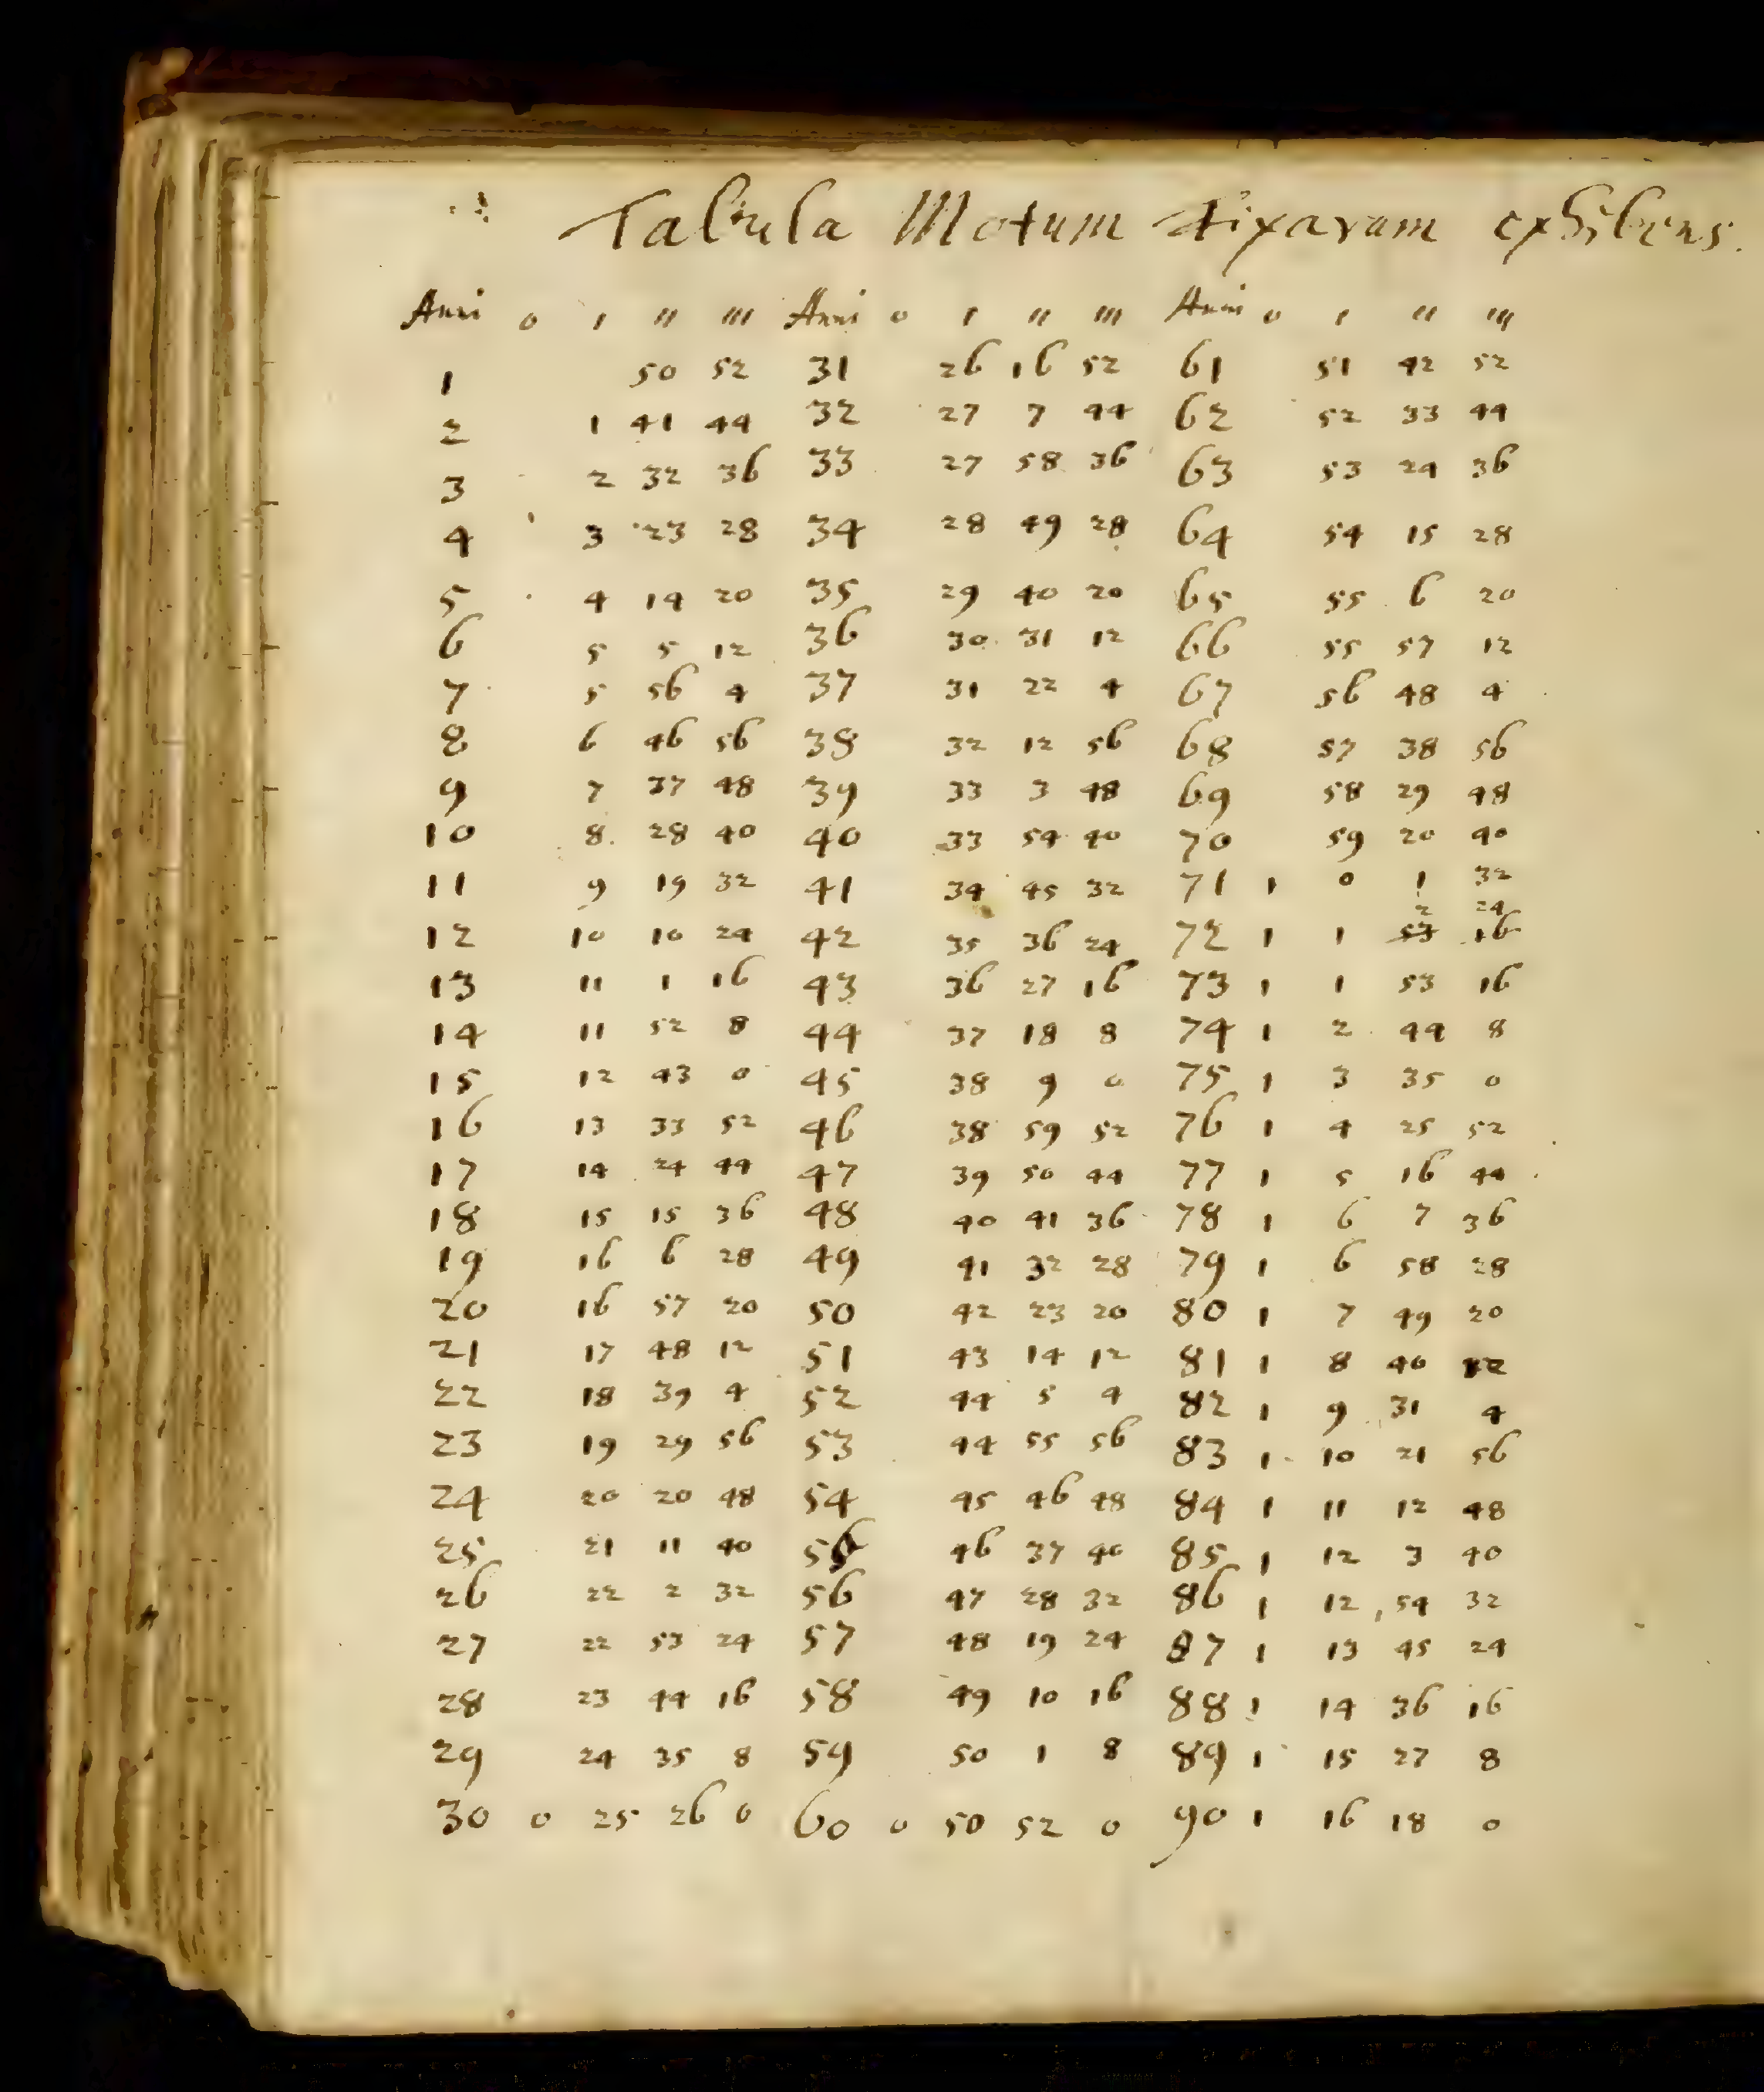 Tabula Motum Fixarum exhibens.
Anni o ' '' ''' Anni o ' '' ''' Anni o ' '' '''
1 50 52 31 26 16 52 61 51 42 52
2 1 41 44 32 27 7 44 62 52 33 44
3 2 32 36 33 27 58 36 63 53 24 36
4 3 23 28 34 28 49 28 64 54 15 28
5 4 14 20 35 29 40 20 65 55 6 20
6 5 5 12 36 30 31 12 66 55 57 12
7 5 56 4 37 31 22 4 67 56 48 4
8 6 46 56 38 32 12 56 68 57 38 56
9 7 37 48 39 33 3 48 69 58 29 48
10 8 28 40 40 33 54 40 70 59 20 40
11 9 19 32 41 34 45 32 71 1 0 1 32
2 24
12 10 10 24 42 35 36 24 72 1 1 53 16
13 11 1 16 43 36 27 16 73 1 1 53 16
14 11 52 8 44 37 18 8 74 1 2 44 8
15 12 43 0 45 38 9 0 75 1 3 35 0
16 13 33 52 46 38 59 52 76 1 4 25 52
17 14 24 44 47 39 50 44 77 1 5 16 44
18 15 15 36 48 40 41 36 78 1 6 7 36
19 16 6 28 49 41 32 28 79 1 6 58 28
20 16 57 20 50 42 23 20 80 1 7 49 20
21 17 48 12 51 43 14 12 81 1 8 40 12
22 18 39 4 52 44 5 4 82 1 9 31 4
23 19 29 56 53 44 55 56 83 1 10 21 56
24 20 20 48 54 45 46 48 84 1 11 12 48
25 21 11 40 55 46 37 40 85 1 12 3 40
26 22 2 32 56 47 28 32 86 1 12 54 32
27 22 53 24 57 48 19 24 87 1 13 45 24
28 23 44 16 58 49 10 16 88 1 14 36 16
29 24 35 8 59 50 1 8 89 1 15 27 8
30 0 25 26 0 60 0 50 52 0 90 1 16 18 0